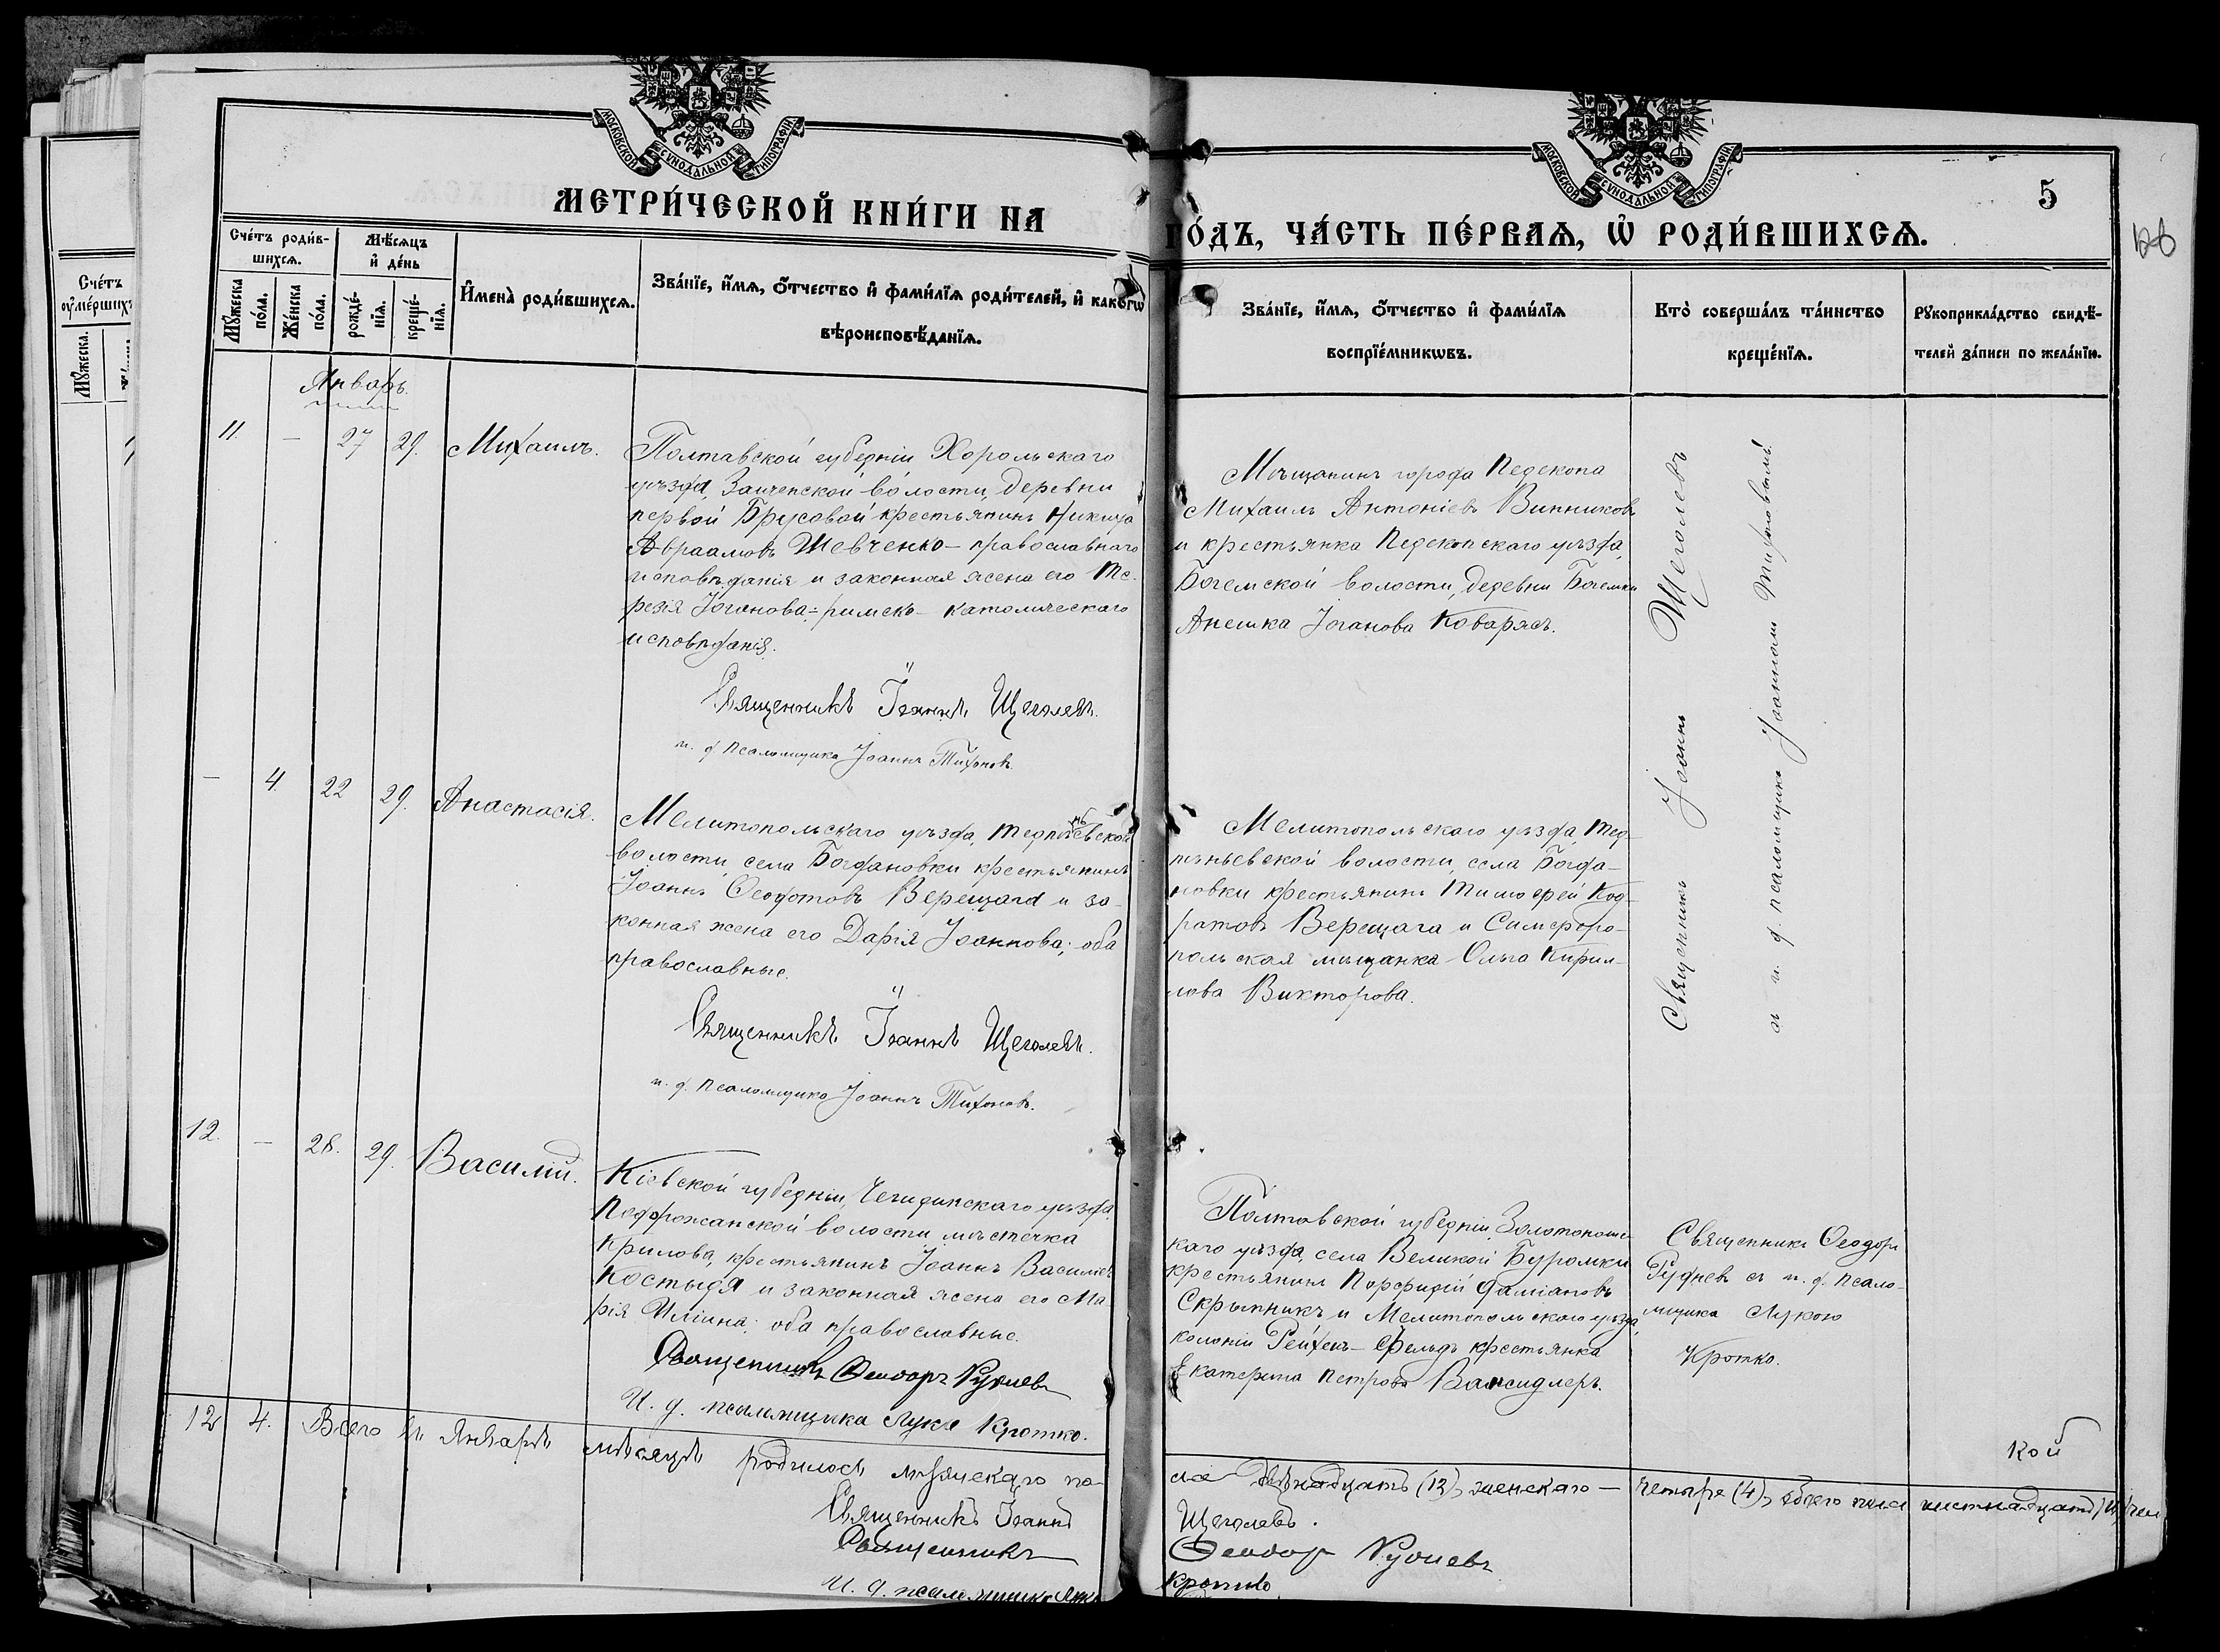 МОСКОВСКОЙ СѴНОДАЛЬНОЙ ТИПОГРАФІИ
МЕТРИ́ЧЕСКОЙ КНИ́ГИ НА
Сче́тъ роди́в-
шихсѧ.
Мѣ́сѧцъ
и҆ де́нь
Мꙋ́жеска
по́ла.
Же́нска
по́ла.
рожде́-
нїѧ.
креще́-
нїѧ.
И҆мена̀ роди́вшихсѧ.
Зва́нїе, и҆́мѧ, ѻ҆́тчество и҆ фами́лїѧ роди́телей, и҆ како́гѡ
вѣроисповѣ́данїѧ.
Сче́тъ
ᲂу҆ме́ршихъ
Мꙋ́жеска
Январь.
11. — 27 29. Михаилъ.
Полтавской губерніи Хорольскаго
уѣзда, Заиченской волости, деревни
первой Брусовой крестьянинъ Никита
Авраамовъ Шевченко – православнаго
исповѣданія и законная жена его Те-
резія Іоганова – римско-католическаго
исповѣданія.
Священникъ Іоаннъ Щеголевъ.
и. д. псаломщика Іоаннъ Тихоновъ.
— 4. 22 29. Анастасія.
Мелитопольскаго уѣзда, Терпѣньевской
волости, села Богдановки крестьянинъ
Іоаннъ Ѳеодотовъ Верещага и за-
конная жена его Дарія Іоаннова; оба
православные.
Священникъ Іоаннъ Щеголевъ.
и. д. псаломщика Іоаннъ Тихоновъ.
12. — 28. 29. Василій.
Кіевской губерніи, Чигиринскаго уѣзда,
Подорожанской волости, мѣстечка
Крилова, крестьянинъ Іоаннъ Василіевъ
Костыря и законная жена его Ма-
рія Иліина; оба православные.
Священникъ Ѳеодоръ Рудневъ
И. д. псаломщика Лука Кротко.
12 4. Всего въ Январѣ мѣсяцѣ родилось мужескаго по-
Священникъ Іоаннъ
Священникъ
И. д. псаломщика Лука
МОСКОВСКОЙ СѴНОДАЛЬНОЙ ТИПОГРАФІИ
5
ГО́ДЪ, ЧА́СТЬ ПЕ́РВАѦ, Ѡ҆ РОДИ́ВШИХСѦ.
Зва́нїе, и҆́мѧ, ѻ҆́тчество и҆ фами́лїѧ
воспрїе́мникѡвъ.
Кто̀ соверша́лъ та́инство
креще́нїѧ.
Рꙋкоприкла́дство свидѣ́-
телей за́писи по жела́нїю.
Мѣщанинъ города Перекопа
Михаилъ Антоніевъ Винниковъ
и крестьянка Перекопскаго уѣзда,
Богемской волости, деревни Богемки
Анешка Іоганова Коваржъ.
Священникъ Іоаннъ Щеголевъ
съ и. д. псаломщика Іоанномъ Тихоновымъ.
Мелитопольскаго уѣзда, Тер-
пѣньевской волости, села Богда-
новки крестьянинъ Тимоѳей Код-
ратовъ Верещага и Симферо-
польская мѣщанка Ольга Кирил-
лова Викторова.
Полтавской губерніи, Золотоношс-
каго уѣзда, села Великой Буромки
крестьянинъ Порфирій Даміановъ
Скрыпникъ и Мелитопольскаго уѣзда,
колоніи Рейхенъ-Фельдъ крестьянка
Екатерина Петрова
Священникъ Ѳеодоръ
Рудневъ съ и. д. псало-
мщика Лукою
Кротко.
кой
ла двѣнадцать (12), женскаго — четыре (4), обоего пола шестнадцать
Щеголевъ.
Ѳеодоръ Рудневъ
Кротко